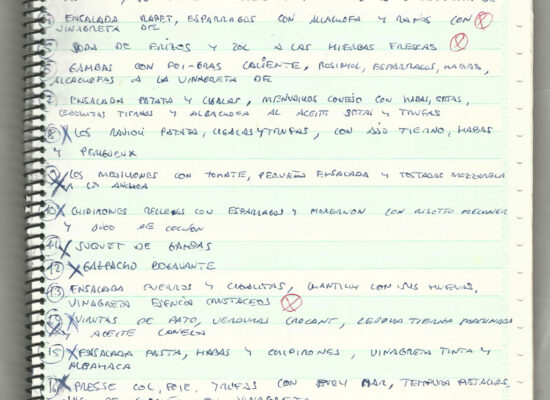 ENSALADA ESPARRAGOS CON ALCACHOFA Y CON
VINAGRETA DE
SOPA DE ERIZOS Y COL A LAS HIERBAS FRESCAS
GAMBAS CON FOI-GRAS CALIENTE, ESPARRAGOS, HABAS,
ALCACHOFAS A LA VINAGRETA DE
7 ENSALADA PATATA Y CIGALAS, CONEJO CON HABAS, SETAS,
CEBOLLITAS TIERNAS Y AL ACEITE SETAS Y TRUFAS
8 LOS RAVIOLI PATATA, CIGALAS Y TRUFAS, CON AJO TIERNO, HABAS
Y
LOS MEJILLONES CON TOMATE, PEQUEÑA ENSALADA Y TOSTADAS MOZZARELLA
A LA ANCHOA
10 CHIPIRONES RELLENOS CON ESPARRAGOS Y CON RISOTTO
Y JUGO DE COCCION
11 SUQUET DE GAMBAS
12 GAZPACHO BOGAVANTE
13 ENSALADA PUERROS Y CIGALITAS, CON SUS HUEVAS,
VINAGRETA ESENCIA CRUSTACEOS
VIRUTAS DE PATO, VERDURAS CROCANT, CEBOLLA TIERNA MARINADA
Y ACEITE CANELA
15 ENSALADA PASTA, HABAS Y CHIPIRONES, VINAGRETA TINTA Y
ALBAHACA
16 PRESSE COL, FOIE, TRUFAS CON MAR, TEMPURA PISTACHOS,
VINAGRETA